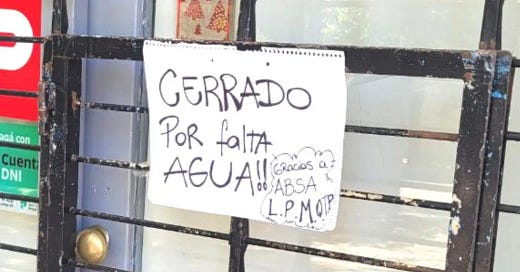 CERRADO
Por falta
AGUA!!
Gracias a
ABSA
L.P.M.QTP
agá con
Cuenta
DNI